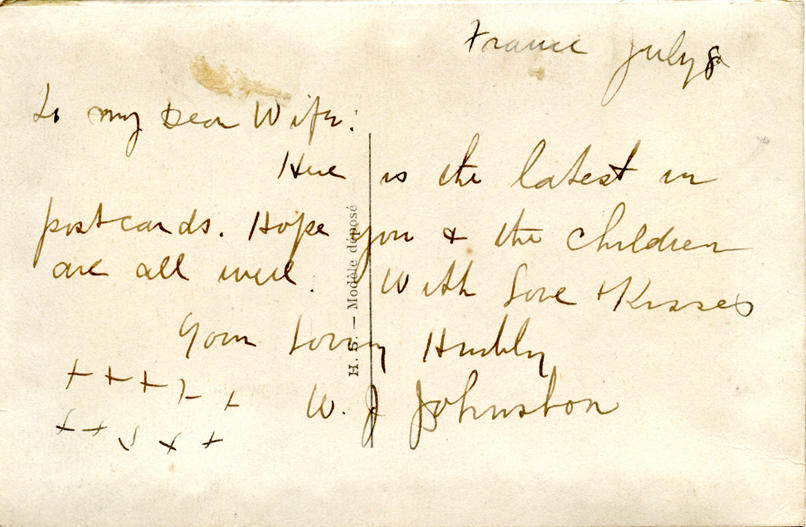 France July 8
To my Dear Wife:
Here is the latest in
postcards. Hope you & the children
are all well. With Love & Kisses
Your Loving Hubby
W. J Johnston
+ + + + +
+ + + + +
H. S. — Modèle déposé